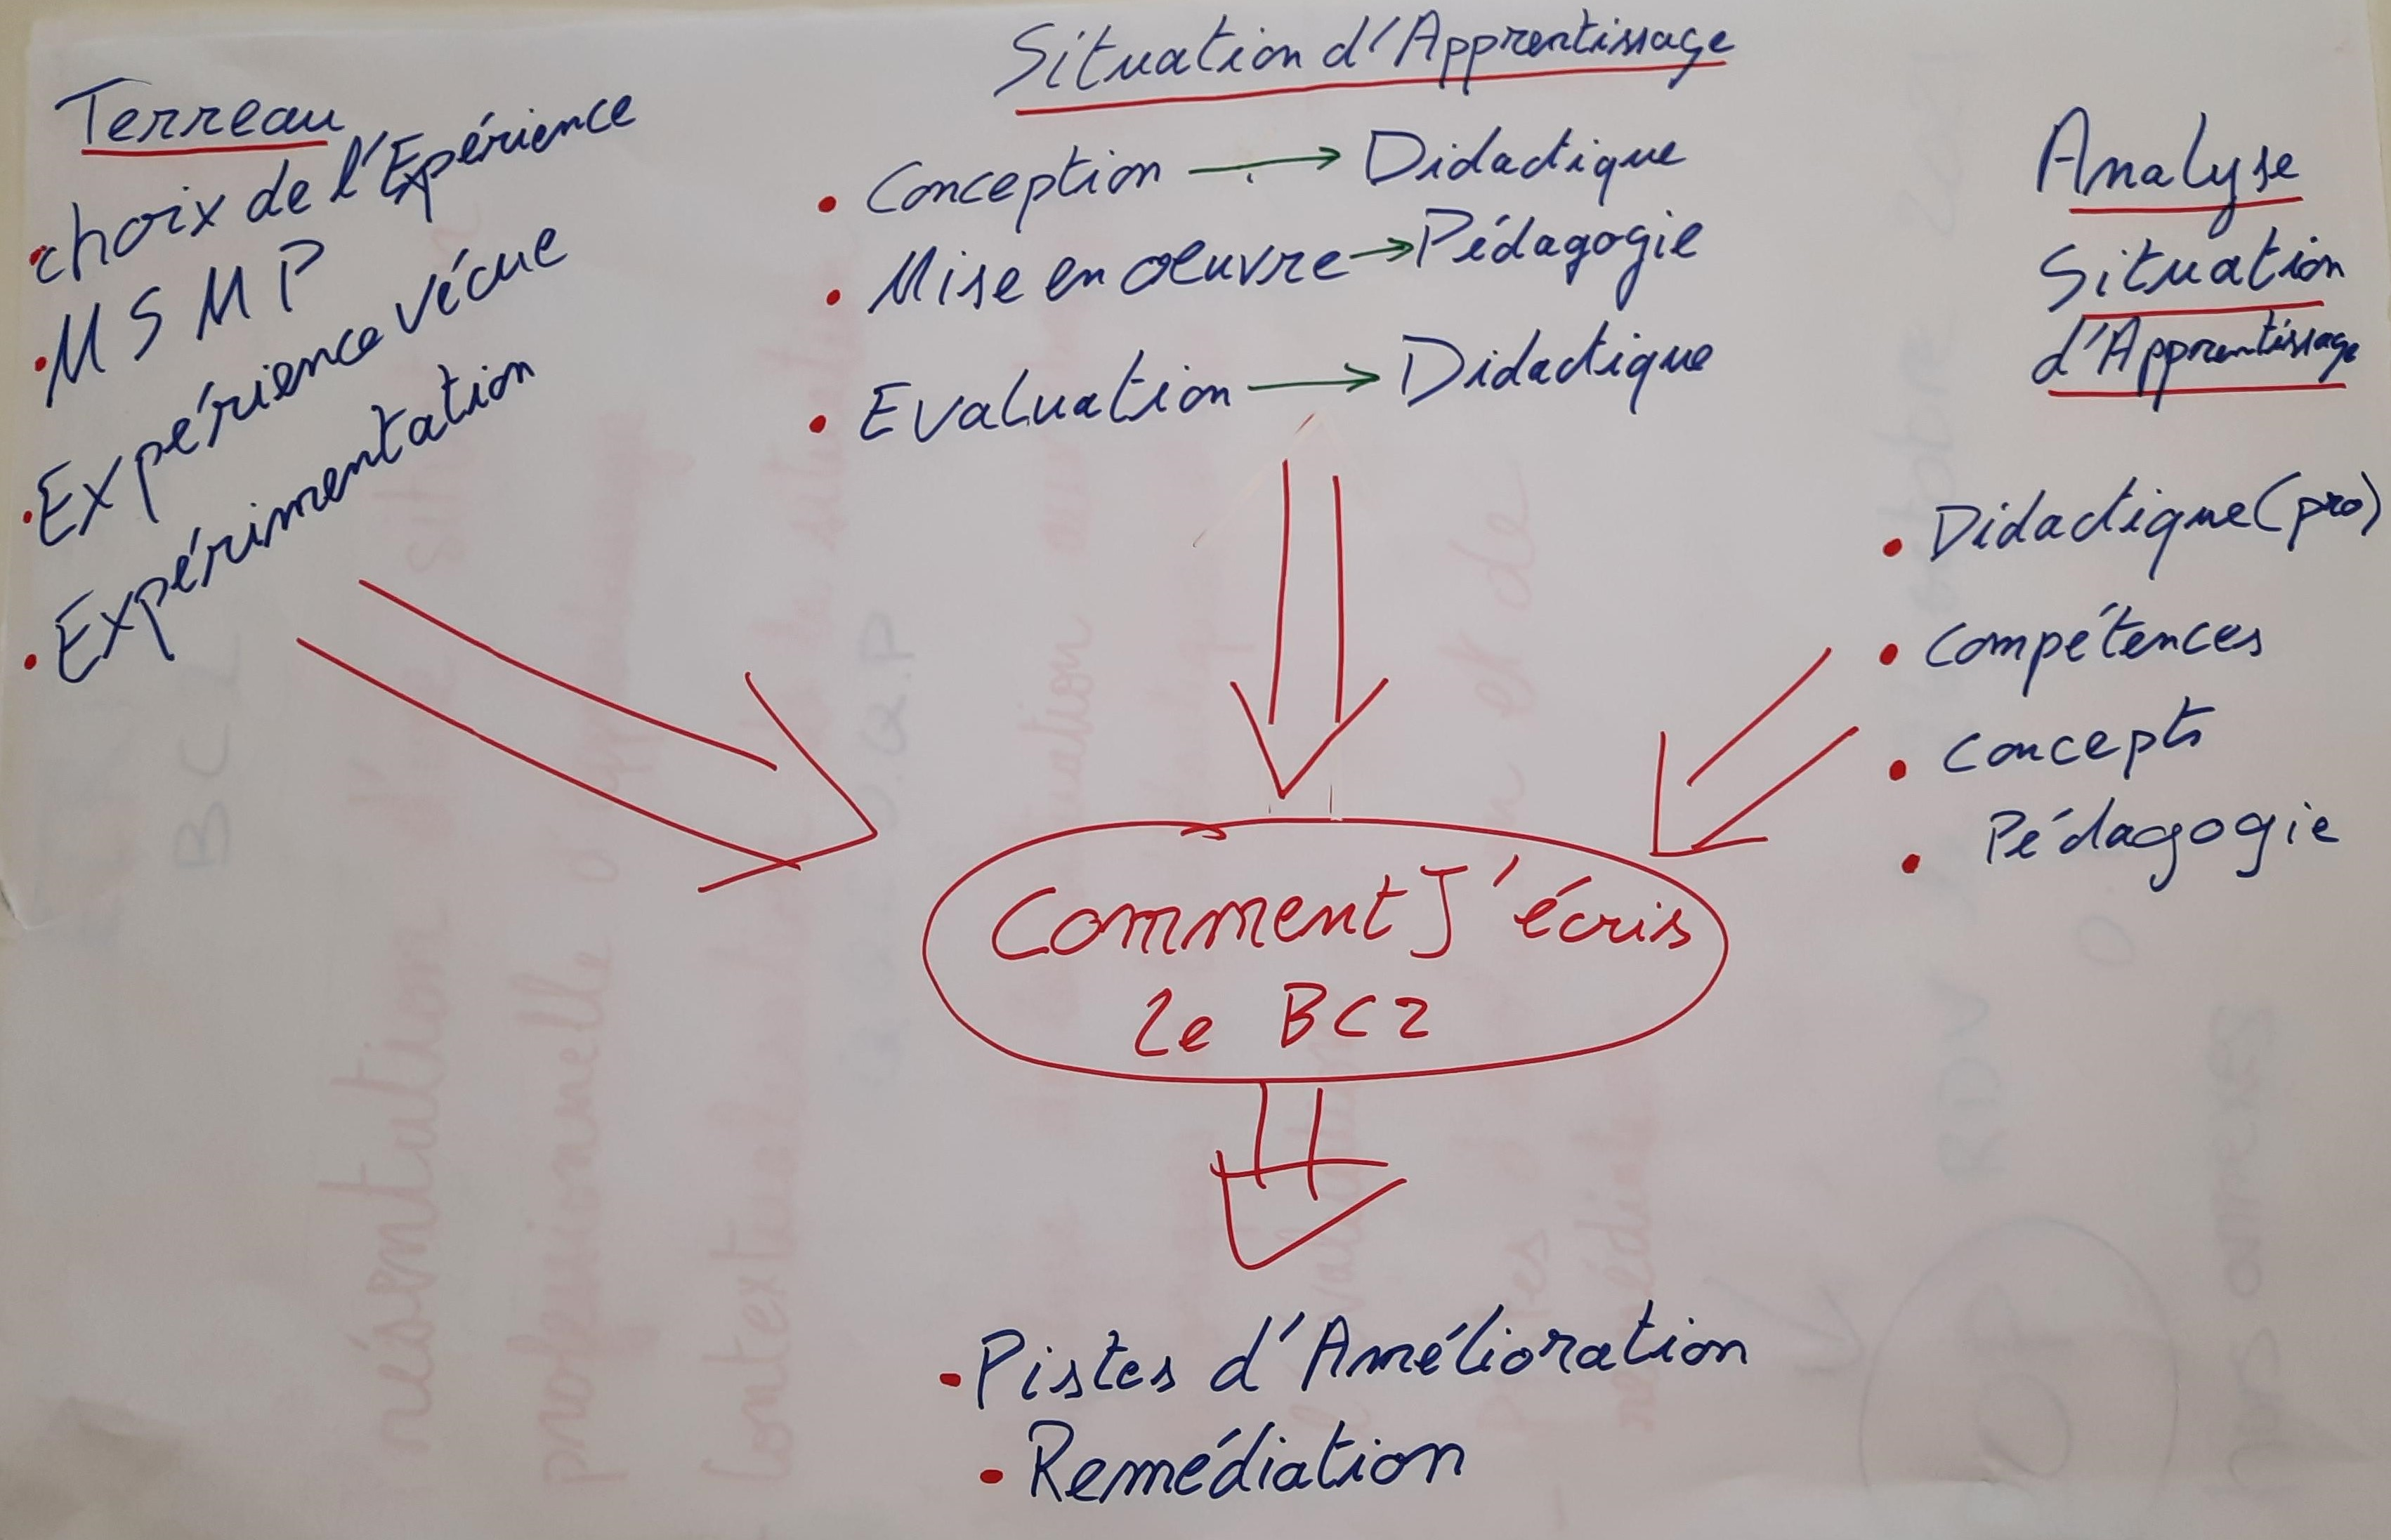 Terreau
choix de l'Expérience
MSMP
Expérience vécue
Expérimentation
Situation d'Apprentissage
Conception → Didactique
Mise en oeuvre → Pédagogie
Evaluation → Didactique
Analyse
Situation
d'Apprentissage
Didactique (pro)
Compétences
Concepts
Pédagogie
Comment J'écris
le BC2
Pistes d'Amélioration
Remédiation